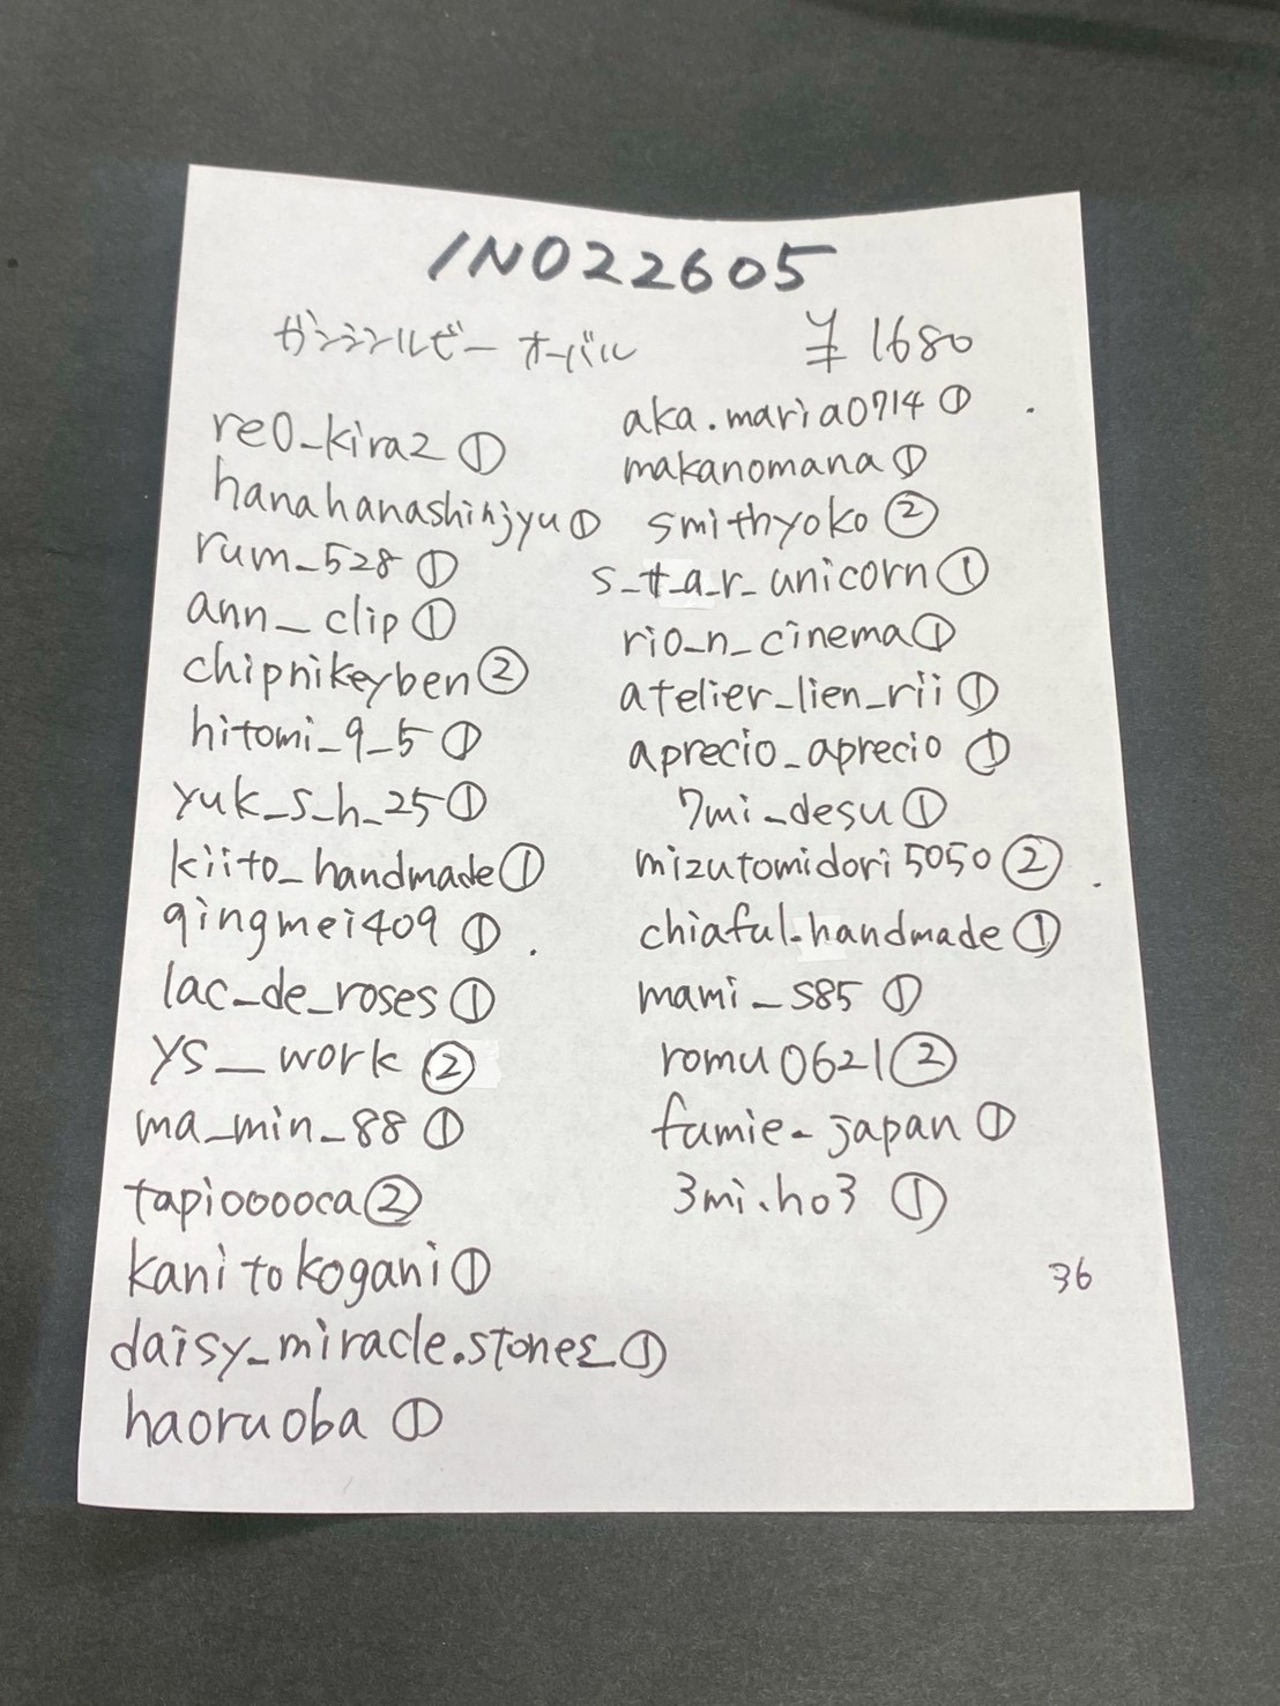 INO22605
ガンテンルビー オーバル
¥1680
re0_kira2 ①
hanahanashinjyu①
rum_528 ①
ann_clip ①
chipnikeyben②
hitomi_9_5 ①
yuk_s_h_25①
kiito_handmade①
qingmei409 ①
lac_de_roses ①
ys__work ②
ma_min_88 ①
tapiooooca②
kanitokogani①
daisy_miracle.stones_①
haoruoba ①
aka.maria0714 ①
makanomana①
smithyoko②
s_t_a_r_unicorn①
rio_n_cinema①
atelier_lien_rii ①
aprecio_aprecio ①
7mi_desu①
mizutomidori5050②
chiaful.handmade①
mami_s85 ①
romu0621②
fumie_japan ①
3mi.ho3 ①
36